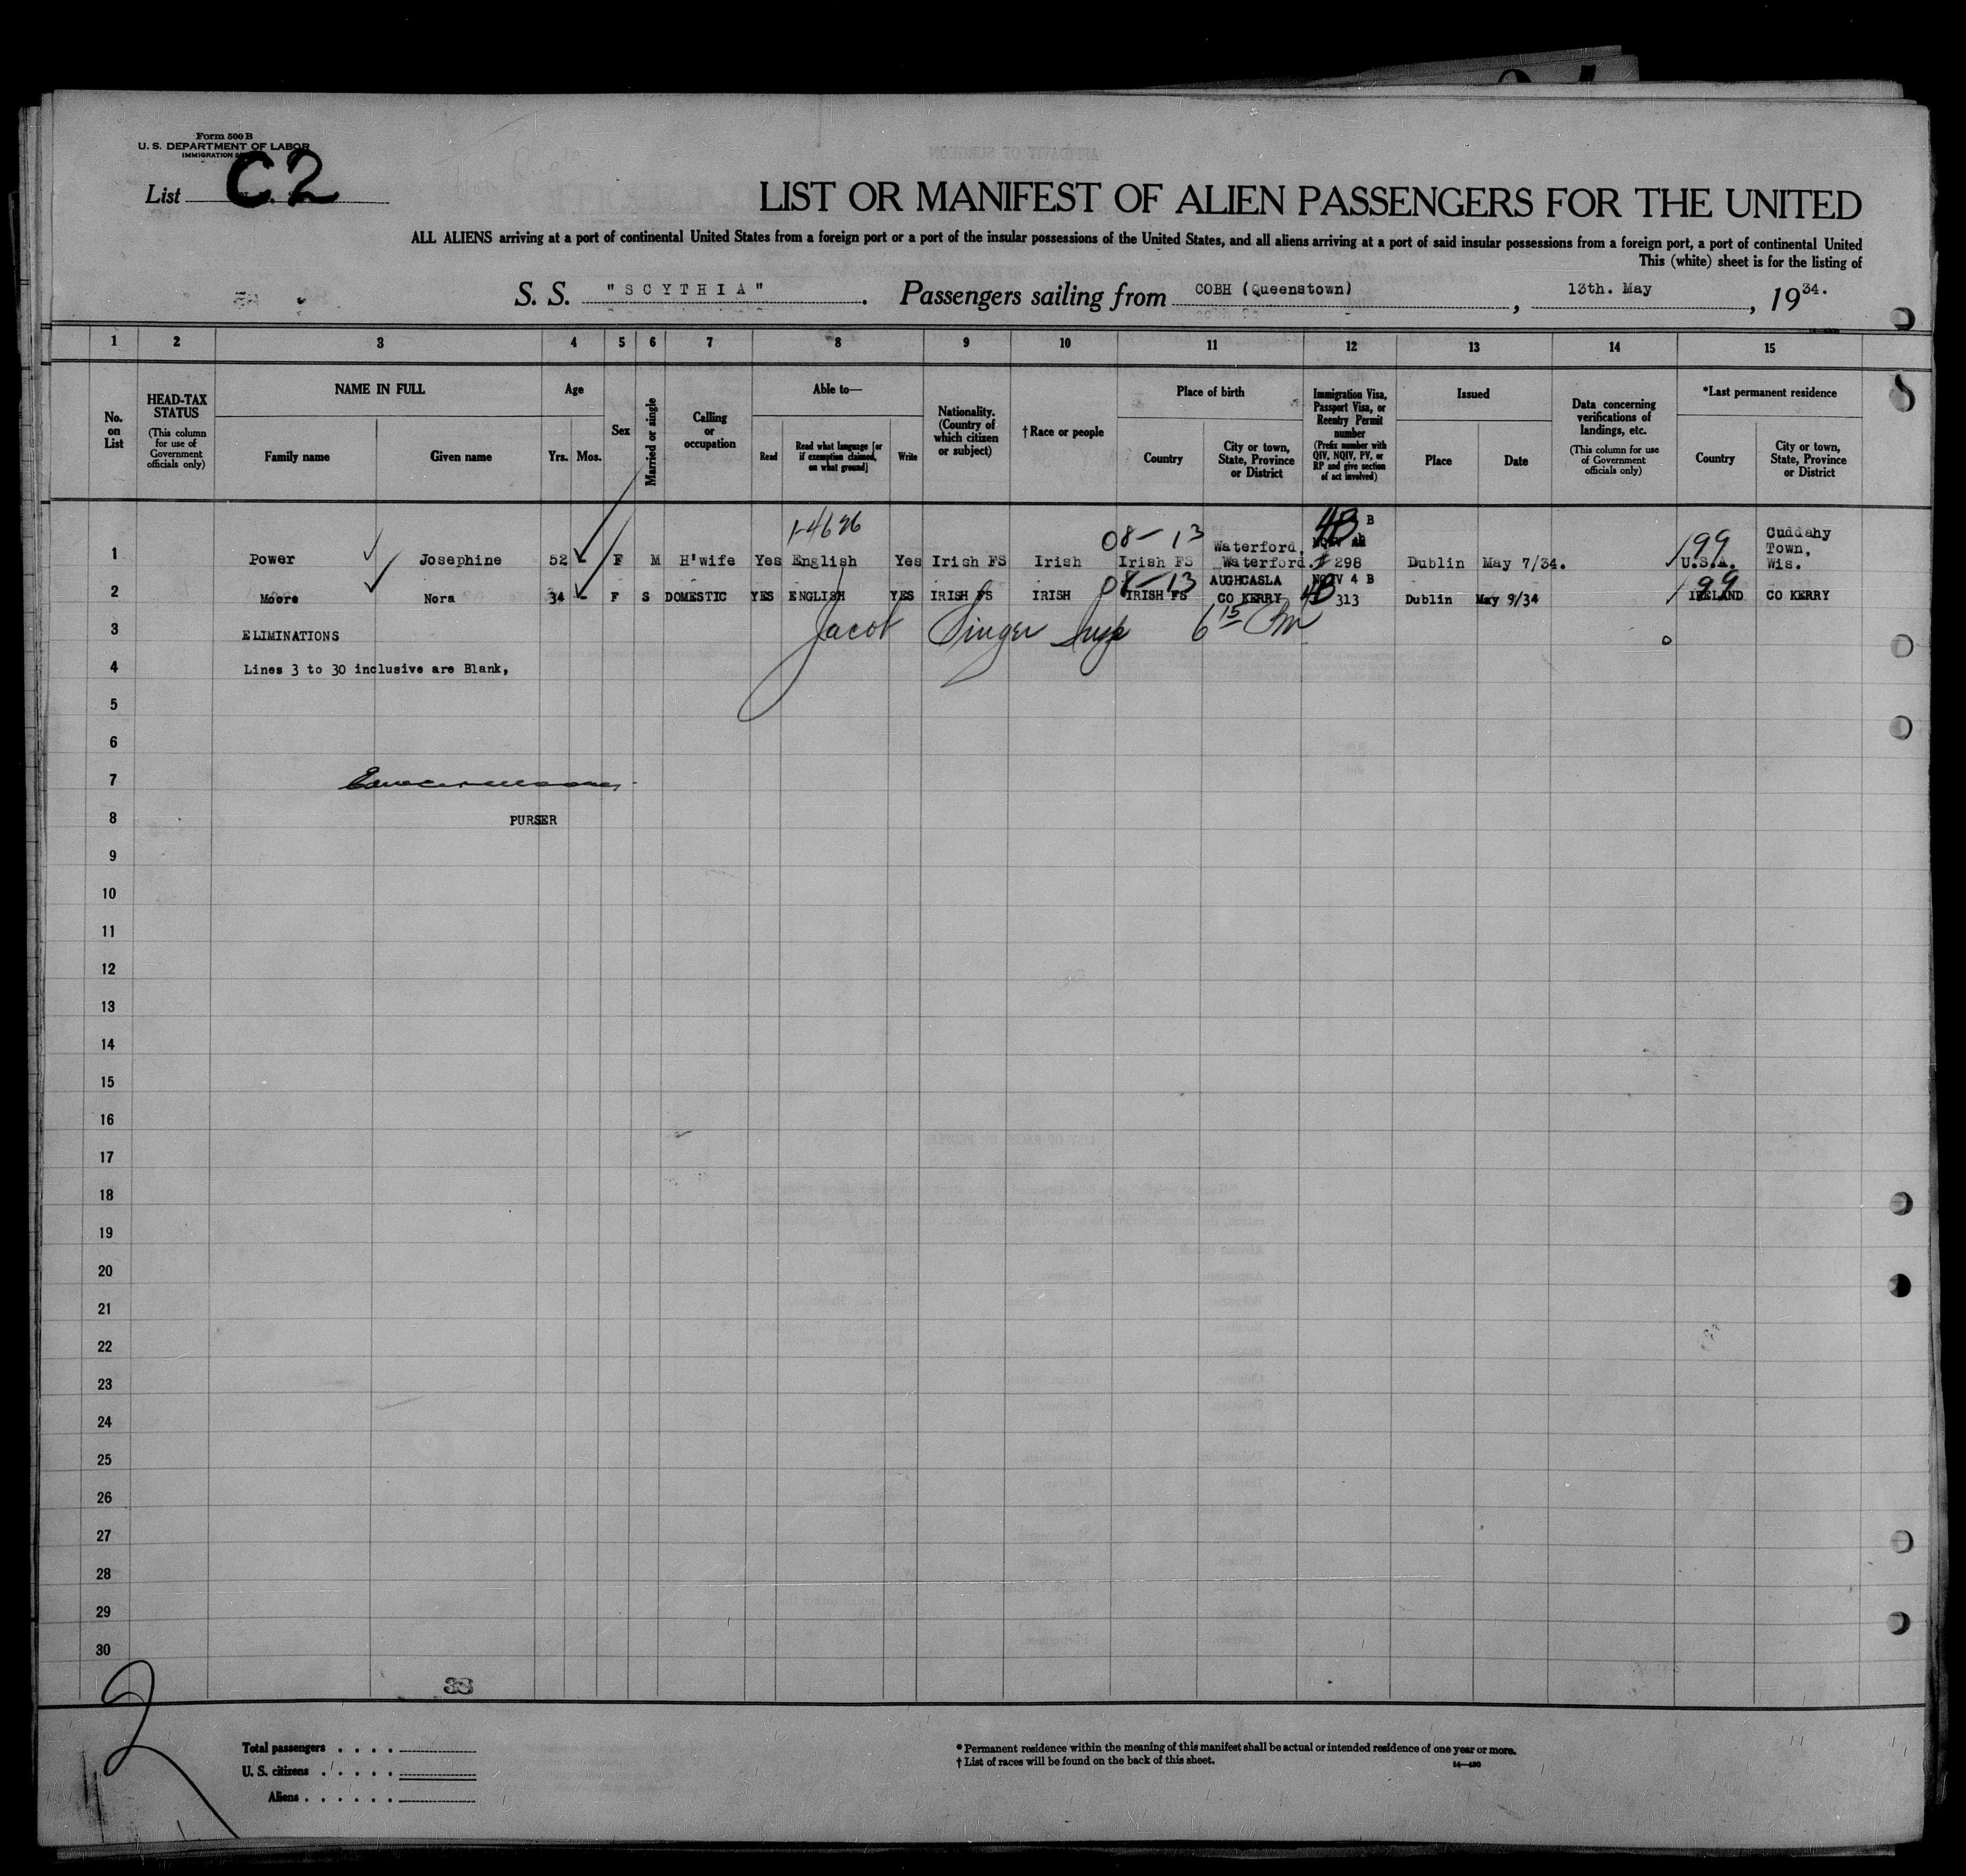 Form 500 B
U. S. DEPARTMENT OF LABOR
IMMIGRATION
List C2
LIST OR MANIFEST OF ALIEN PASSENGERS FOR THE UNITED
ALL ALIENS arriving at a port of continental United States from a foreign port or a port of the insular possessions of the United States, and all aliens arriving at a port of said insular possessions from a foreign port, a port of continental United
This (white) sheet is for the listing of
S. S. "SCYTHIA". Passengers sailing from COBH (Queenstown), 13th. May, 1934.
1 2 3 4 5 6 7 8 9 10 11 12 13 14 15
No. on List
HEAD-TAX STATUS (This column for use of Government officials only)
NAME IN FULL
Family name
Given name
Age
Yrs. Mos.
Sex
Married or single
Calling or occupation
Able to—
Read
Read what language [or if exemption claimed, on what ground]
Write
Nationality. (Country of which citizen or subject)
†Race or people
Place of birth
Country
City or town, State, Province or District
Immigration Visa, Passport Visa, or Reentry Permit number (Prefix number with QIV, NQIV, PV, or RP and give section of act involved)
Issued
Place
Date
Data concerning verifications of landings, etc. (This column for use of Government officials only)
*Last permanent residence
Country
City or town, State, Province or District
1-4626
08-13
4B B
199
1 Power Josephine 52 - F M H'wife Yes English Yes Irish FS Irish Irish FS Waterford, Waterford. 298 Dublin May 7/34. U.S.A. Cuddahy Town, Wis.
08-13
4B
199
2 Moore Nora 34 - F S DOMESTIC YES ENGLISH YES IRISH FS IRISH IRISH FS AUGHCASLA CO KERRY NQIV 4 B 313 Dublin May 9/34 IRELAND CO KERRY
3 ELIMINATIONS
Jacob Singer Insp 6 15 Pm
4 Lines 3 to 30 inclusive are Blank,
5
6
7
8 PURSER
9
10
11
12
13
14
15
16
17
18
19
20
21
22
23
24
25
26
27
28
29
30
38
2
Total passengers
U. S. citizens
Aliens
* Permanent residence within the meaning of this manifest shall be actual or intended residence of one year or more.
† List of races will be found on the back of this sheet.
14—430